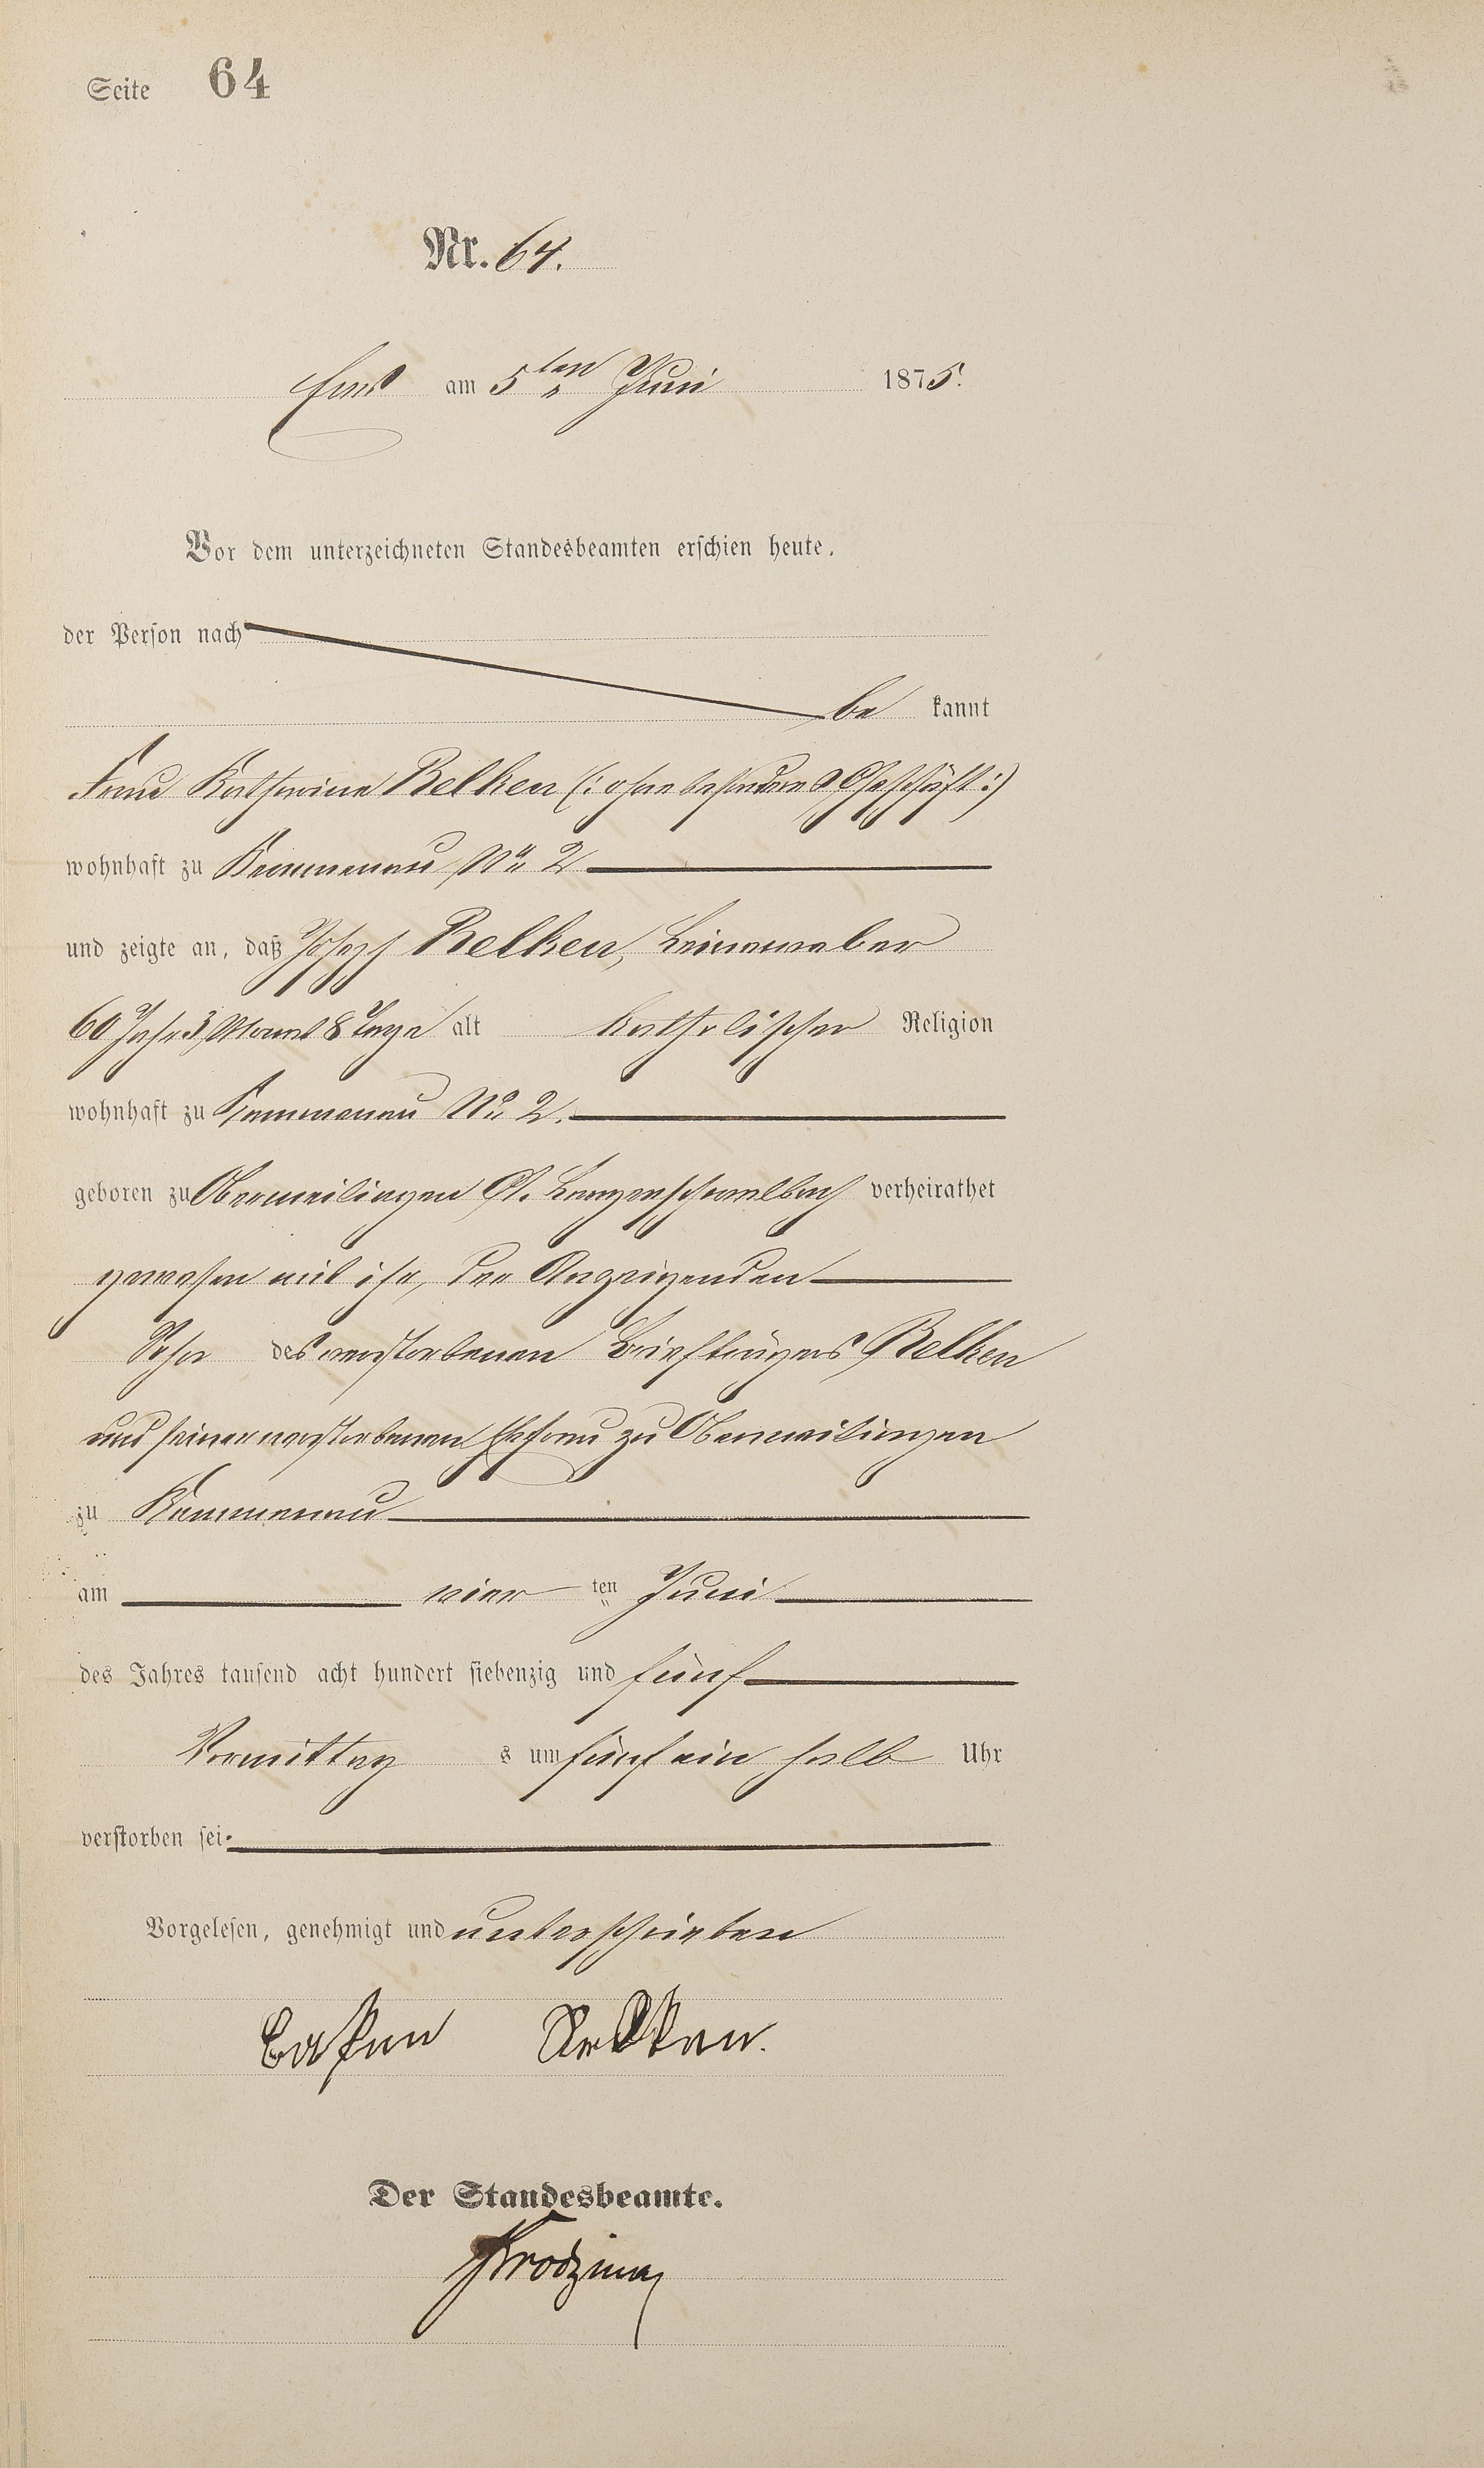 Seite 64
Nr. 64.
Ems am 5ten Juni 1875.
Vor dem unterzeichneten Standesbeamten erschien heute,
der Person nach
be kannt
Frau Katharina Relken (: ohne besonderes Geschäft :)
wohnhaft zu Kemmenau No 2
und zeigte an, daß Joseph Relken, Leinenweber
60 Jahr 3 Monat 8 Tage alt katholischer Religion
wohnhaft zu Kemmenau No 2.
geboren zu Obermeilingen A. Langenschwalbach verheirathet
gewesen mit ihr, der Anzeigenden
Sohn des verstorbenen Briefträgers Relken
und seiner verstorbenen Ehefrau zu Obermeilingen
zu Kemmenau
am vier ten Juni
des Jahres tausend acht hundert siebenzig und fünf
Vormittag s um fünf ein halb Uhr
verstorben sei.
Vorgelesen, genehmigt und unterschrieben
Relken.
Der Standesbeamte.